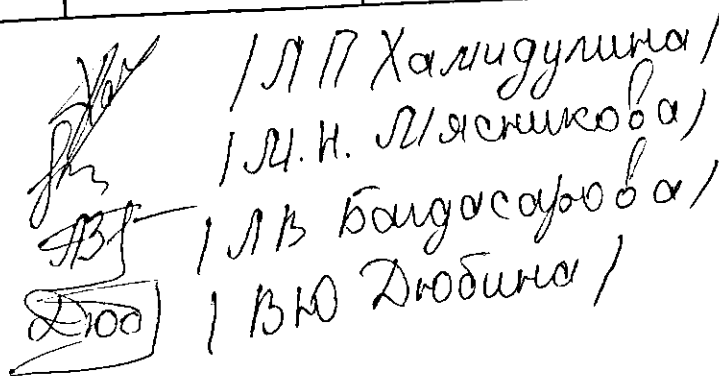 /ЛП Хамидулина/
/М.Н. Мясникова/
/ЛВ Багдасарова/
Дюб /ВЮ Дюбина/